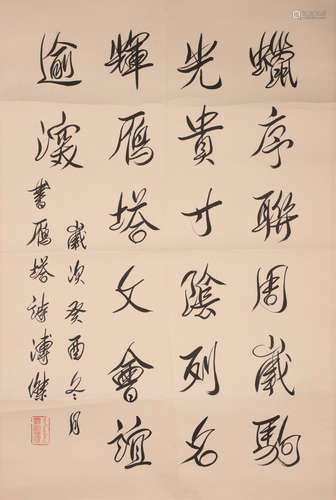 蠟序聯周歲駒
光貴寸陰列名
輝雁塔文會誼
逾深
歲次癸酉冬月
書雁塔詩溥傑